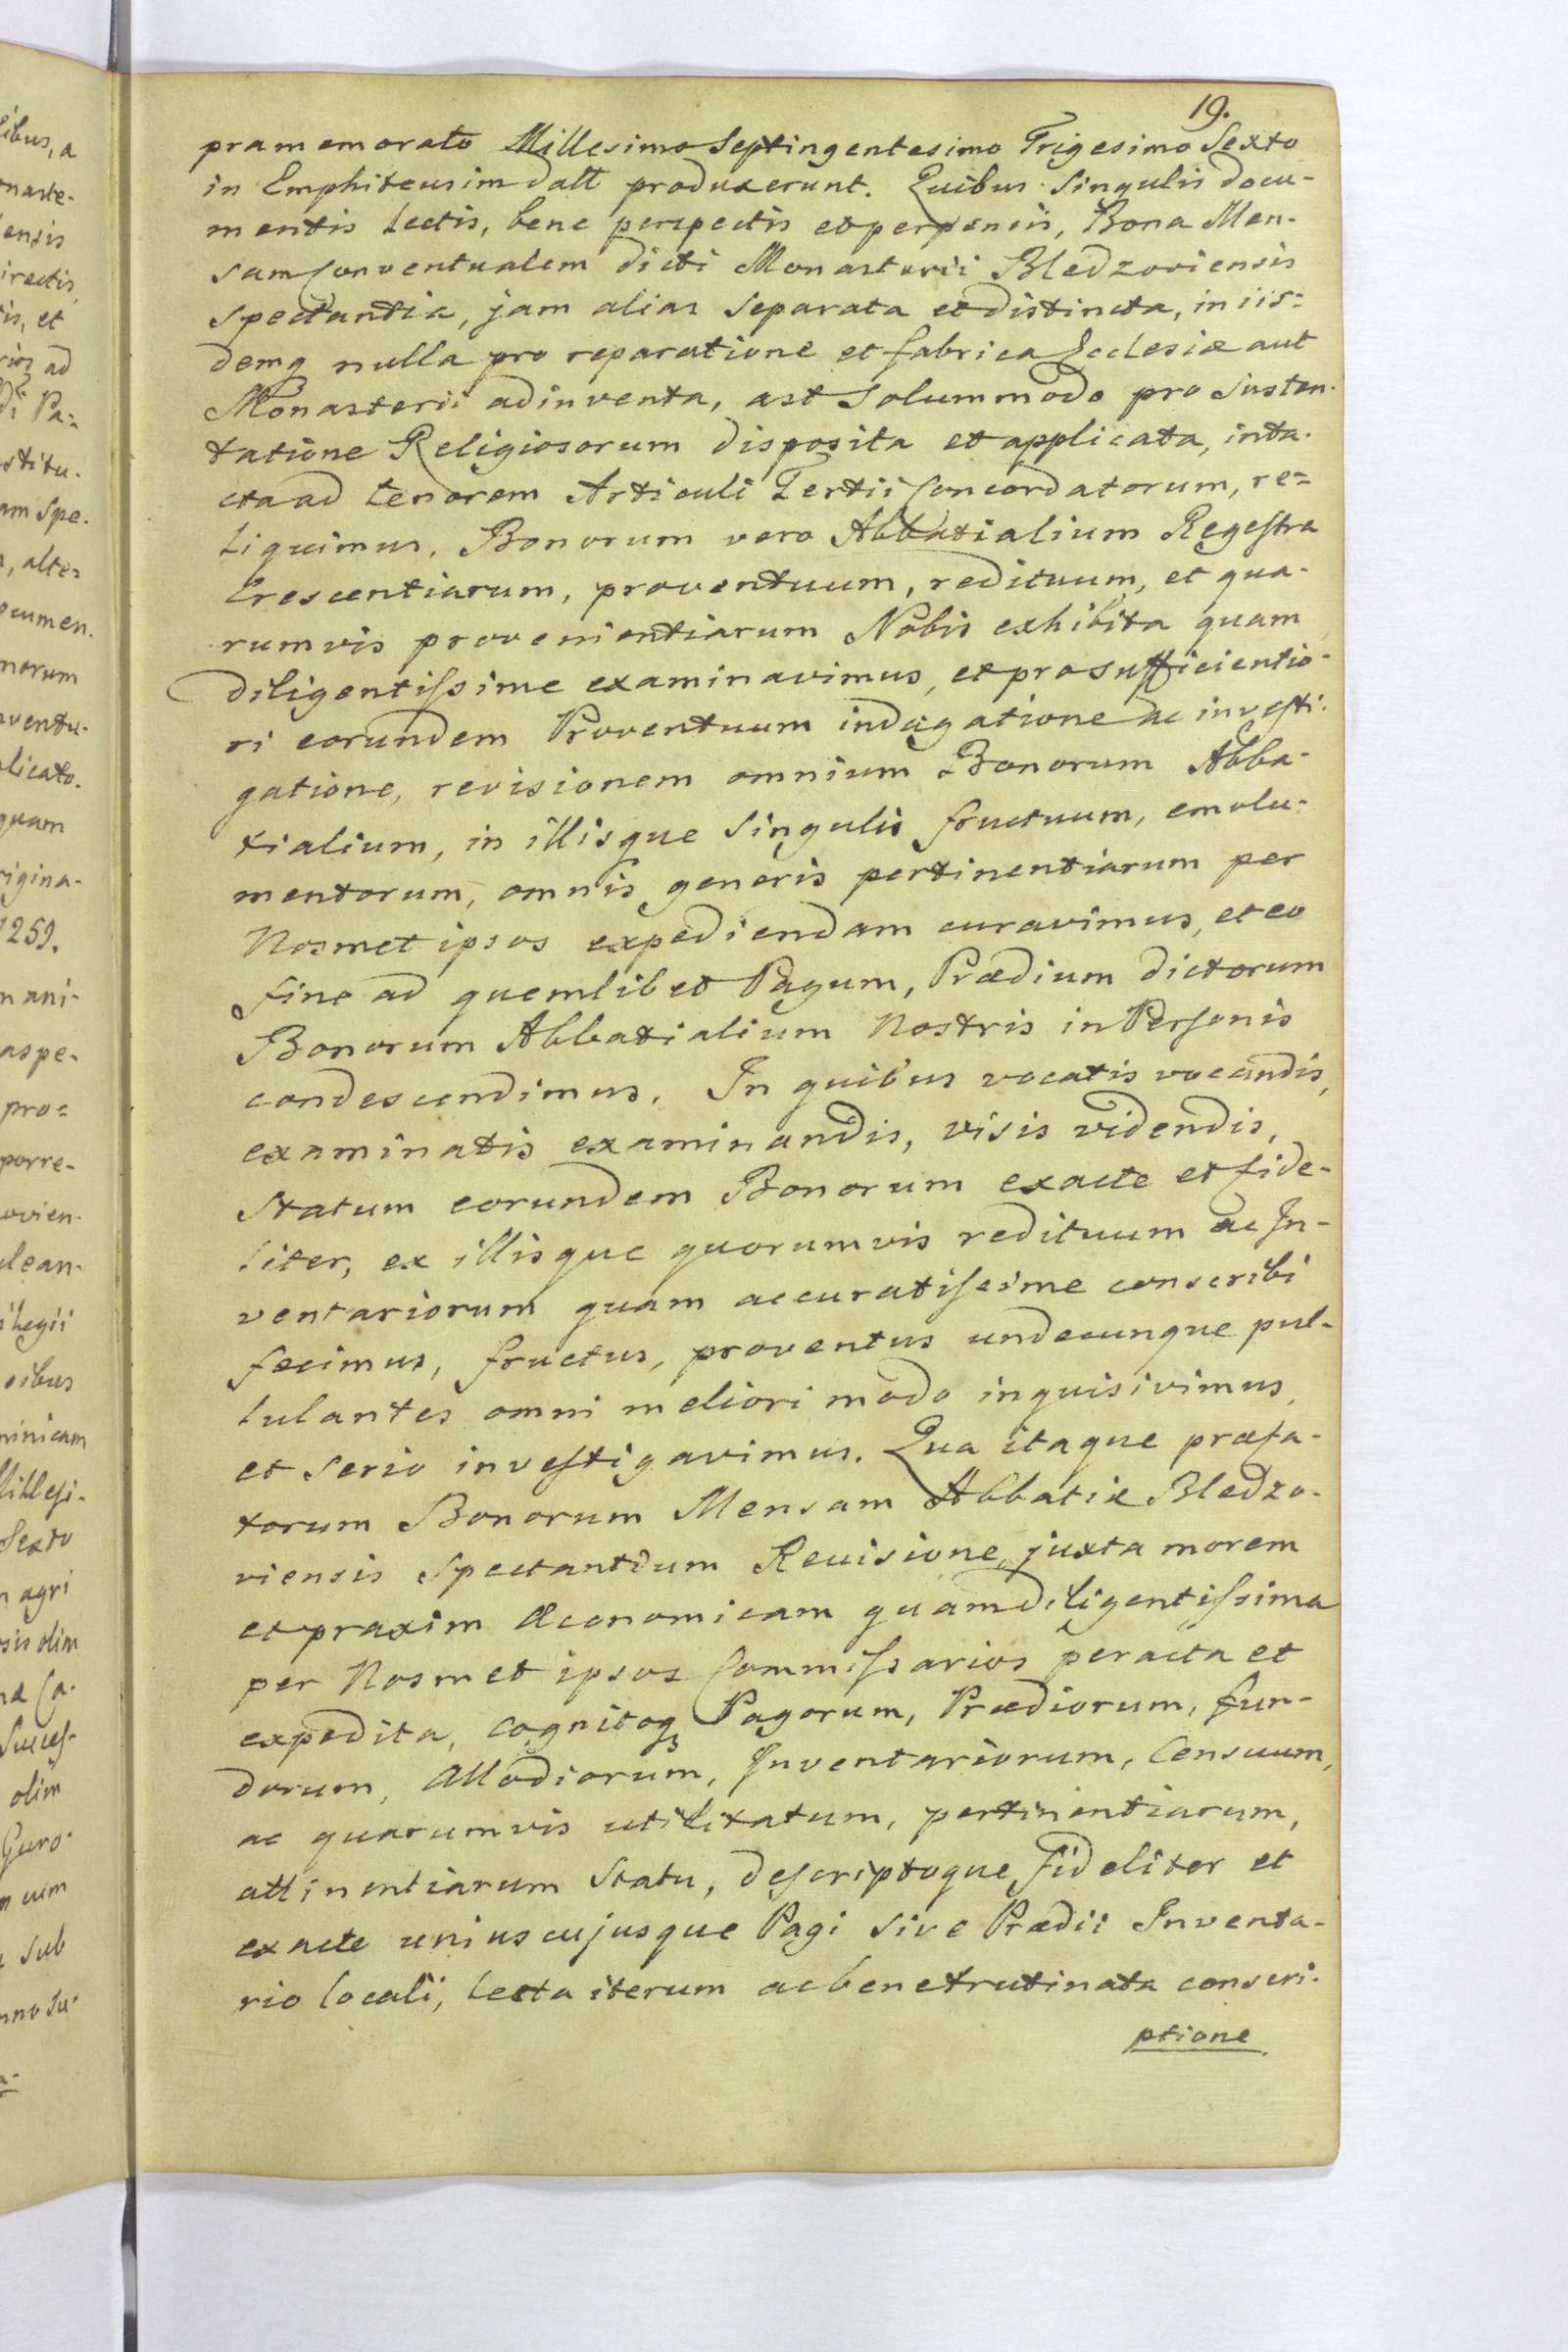 19.
pramemorato Millesimo Septingentesimo Trigesimo Sexto
in Emphiteusim datt produxerunt. Quibus singulis docu-
mentis lectis, bene perspectis et perpensis, Bona Men-
sam Conventualem dicti Monasterii Bledzoviensis
spectantia, jam alias separata et distincta, in iis=
demq nulla pro reparatione et fabrica Ecclesiæ aut
Monasterii adinventa, ast solummodo pro susten-
tatione Religiosorum disposita et applicata, inta-
cta ad tenorem Articuli Tertii Concordatorum, re=
liquimus. Bonorum vero Abbatialium Regestra
Crescentiarum, proventuum, redituum, et qua-
rumvis provenientiarum Nobis exhibita quam
diligentissime examinavimus, et pro sufficientio-
ri eorundem Proventuum indagatione ac investi-
gatione, revisionem omnium Bonorum Abba-
tialium, in illisque singulis fructuum, emolu-
mentorum, omnis generis pertinentiarum per
Nosmet ipsos expediendam curavimus, et eo
fine ad quemlibet Pagum, Prædium dictorum
Bonorum Abbatialium Nostris in Personis
condescendimus. In quibus vocatis vocandis,
examinatis examinandis, visis videndis,
statum eorundem Bonorum exacte et fide-
liter, ex illisque quorumvis redituum ac In-
ventariorum quam accuratissime conscribi
fecimus, fructus, proventus undecunque pul-
lulantes omni meliori modo inquisivimus,
et serio investigavimus. Qua itaque præfa-
torum Bonorum Mensam Abbatiæ Bledzo-
viensis spectantium Revisione, juxta morem
et praxim œconomicam quam diligentissima
per Nosmet ipsos Commissarios peracta et
expedita, cognitoq Pagorum, Prædiorum, fun-
dorum, Allodiorum, Inventariorum, Censuum,
ac quarumvis utilitatum, pertinentiarum,
attinentiarum statu, descriptoque fideliter et
exacte uniuscujusque Pagi sive Prædii Inventa-
rio locali, lecta iterum ac bene trutinata conscri-
ptione